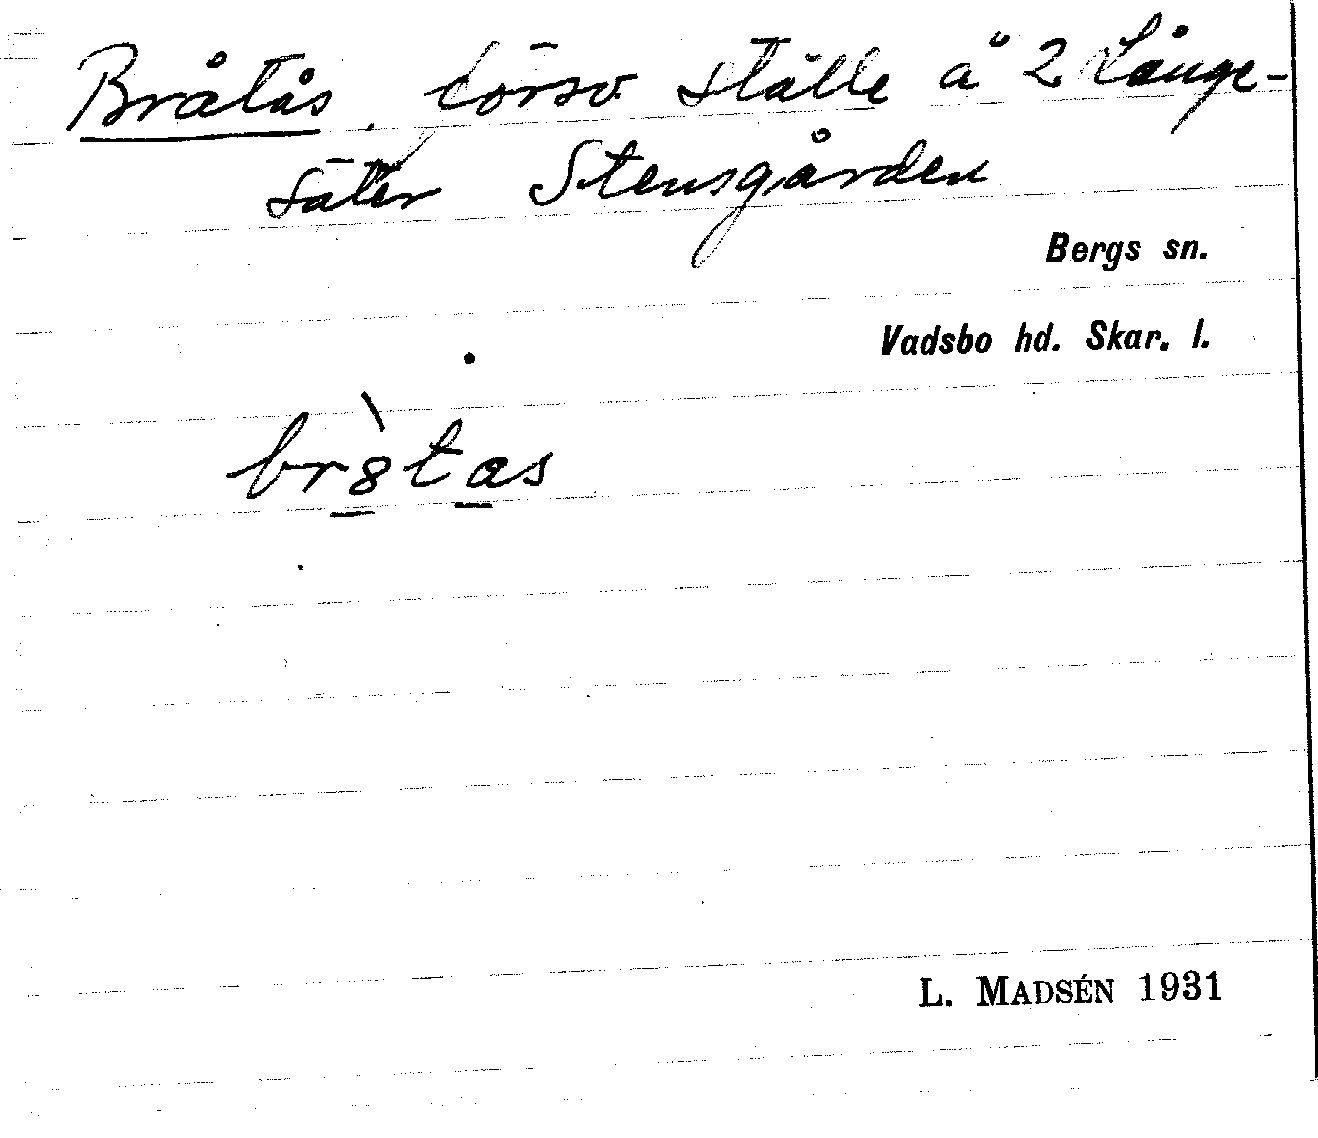 Bråtås, försv. ställe å 2 Långe-
säter Stensgården
Bergs sn.
Vadsbo hd. Skar. l.
br8̀tas
L. MADSÉN 1931